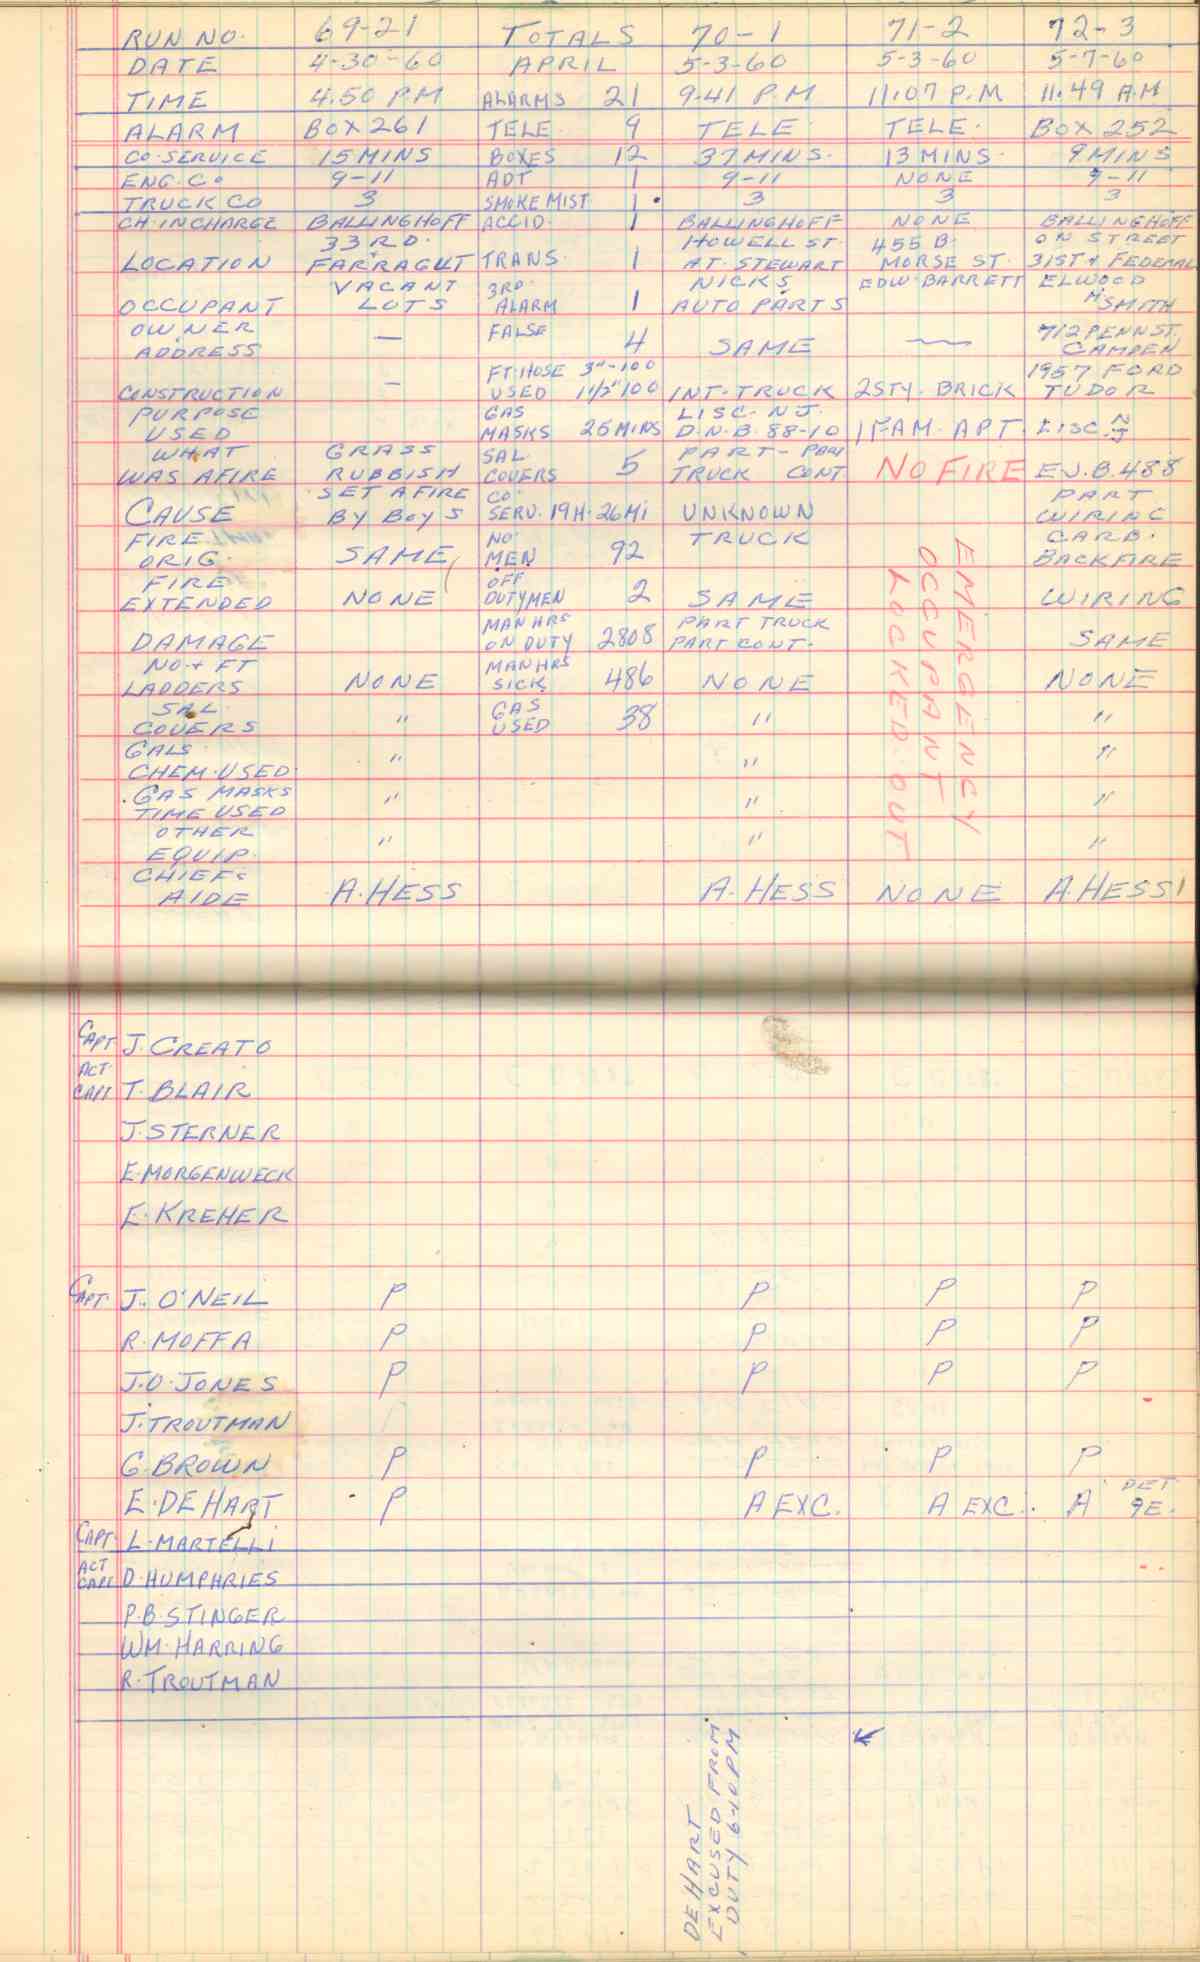 RUN NO. 69-21 TOTALS 70-1 71-2 72-3
DATE 4-30-60 APRIL 5-3-60 5-3-60 5-7-60
TIME 4.50 P.M ALARMS 21 9-41 P.M 11.07 P.M 11.49 A.M
ALARM BOX 261 TELE. 9 TELE. TELE. BOX 252
CO. SERVICE 15 MINS BOXES 12 37 MINS. 13 MINS. 9 MINS
ENG. CO 9-11 ADT 1 9-11 NONE 9-11
TRUCK CO 3 SMOKE MIST. 1 3 3 3
CH. IN CHARGE BALLINGHOFF ACCID. 1 BALLINGHOFF NONE BALLINGHOFF
33 RD. HOWELL ST. 455 B. ON STREET
LOCATION FARRAGUT TRANS. 1 AT. STEWART MORSE ST. 31ST & FEDERAL
VACANT 3RD. NICKS EDW. BARRETT ELWOOD
OCCUPANT LOTS ALARM 1 AUTO PARTS M. SMITH
OWNER FALSE 712 PENN ST.
ADDRESS — 4 SAME — CAMDEN
FT. HOSE 3"-100 1957 FORD
CONSTRUCTION — USED 1 1/2" 100 INT. TRUCK 2 STY. BRICK TUDOR
PURPOSE GAS LISC. N.J.
USED MASKS 26 MINS D.N.B. 88-10 1 FAM. APT. LISC. NJ
WHAT GRASS SAL. PART - PAN
WAS AFIRE RUBBISH COVERS 5 TRUCK CONT. NO FIRE E.J.B. 488
SET AFIRE CO. PART
CAUSE BY BOYS SERV. 19 H. 26 Mi UNKNOWN WIRING
FIRE NO. TRUCK CARB.
ORIG. SAME MEN 92 BACKFIRE
FIRE OFF
EXTENDED NONE DUTY MEN 2 SAME WIRING
MAN HRS PART TRUCK
DAMAGE ON DUTY 2808 PART CONT. SAME
NO. & FT MAN HRS
LADDERS NONE SICK 486 NONE NONE
SAL. GAS
COVERS " USED 38 " "
GALS
CHEM. USED " " "
GAS MASKS
TIME USED " " "
OTHER
EQUIP. " " "
CHIEFS
AIDE A. HESS A. HESS NONE A. HESS
EMERGENCY
OCCUPANT
LOCKED OUT
CAPT J. CREATO
ACT.
CAPT T. BLAIR
J. STERNER
E. MORGENWECK
E. KREHER
CAPT. J. O'NEIL P P P P
R. MOFFA P P P P
J. O. JONES P P P P
J. TROUTMAN
G. BROWN P P P P
E. DE HART P A EXC. A EXC. A DET. 9E.
CAPT. L. MARTELLI
ACT
CAPT D. HUMPHRIES
P. B. STINGER
WM. HARRING
R. TROUTMAN
DE HART
EXCUSED FROM
DUTY 6-10 PM